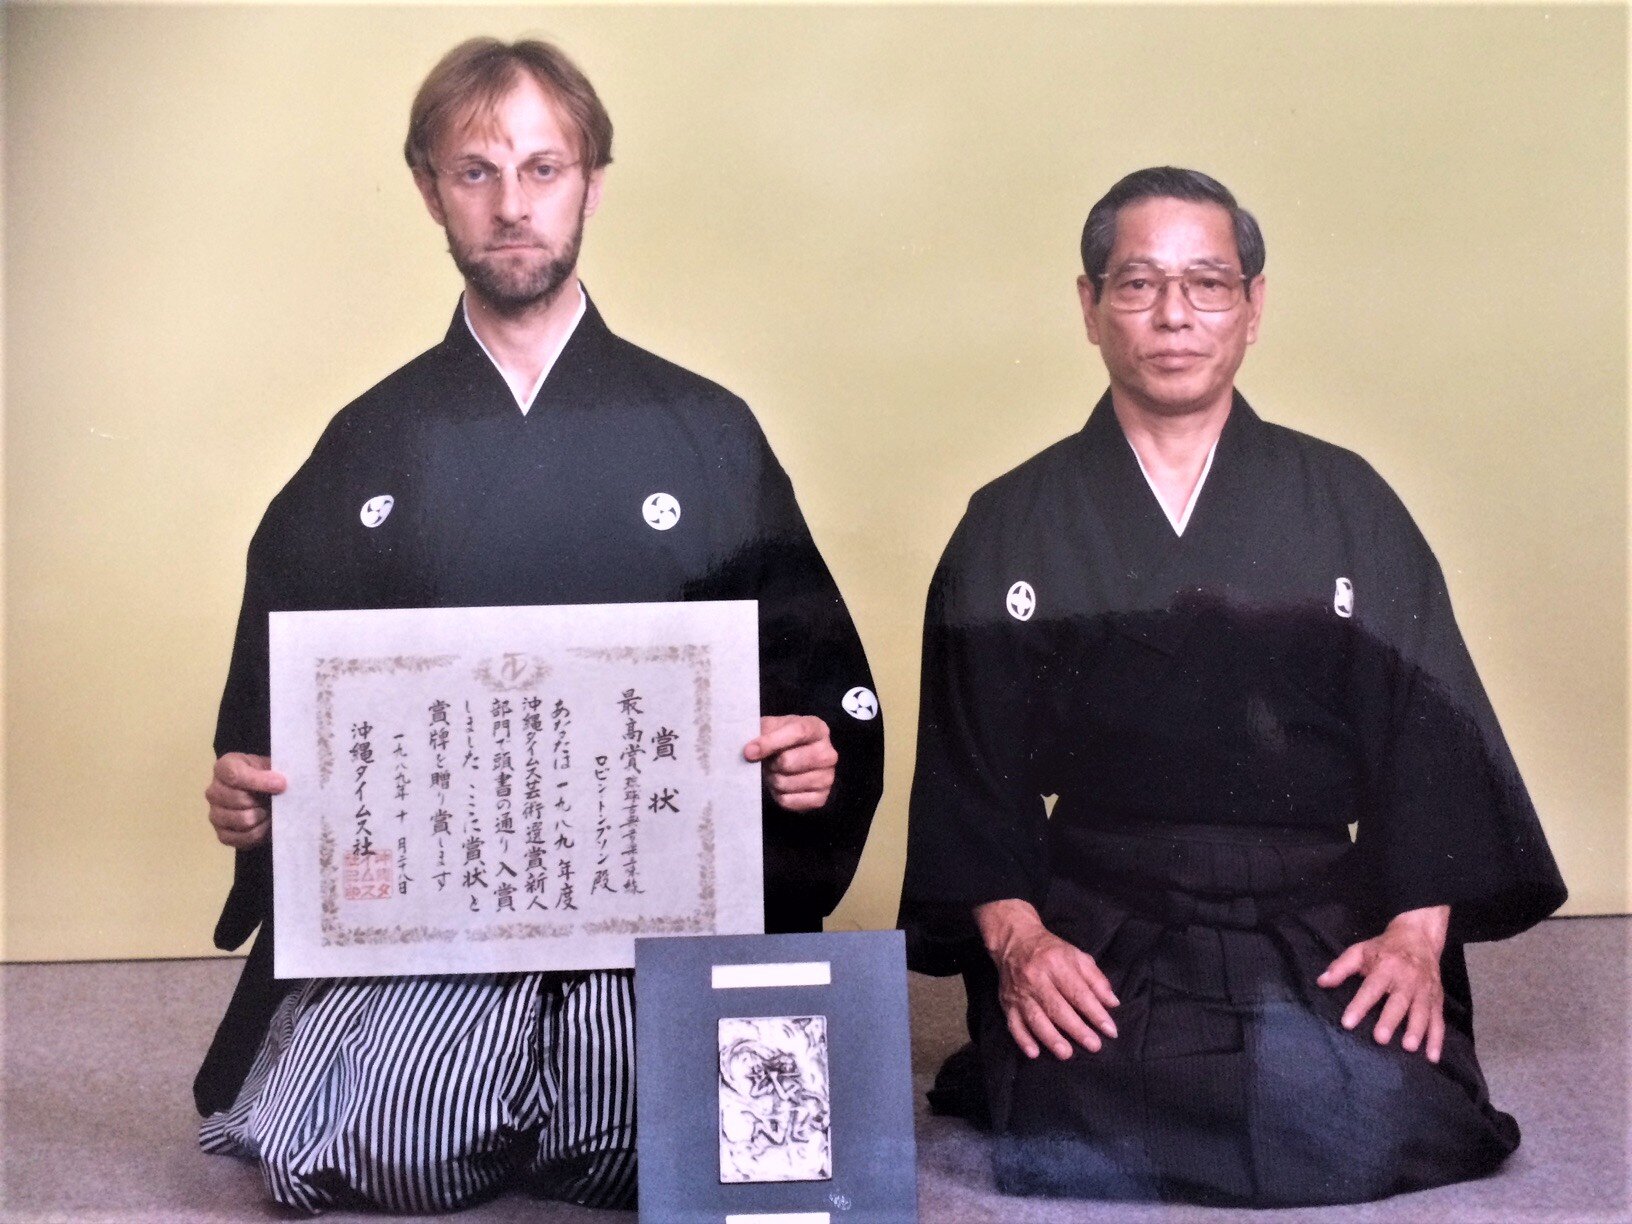 賞状
最高賞 琉球古典音楽三線
ロビントンプソン殿
あなたは一九八九年度
沖縄タイムス芸術選賞新人
部門で頭書の通り入賞
しました ここに賞状と
賞牌を贈り賞します
一九八九年十月二十八日
沖縄タイムス社